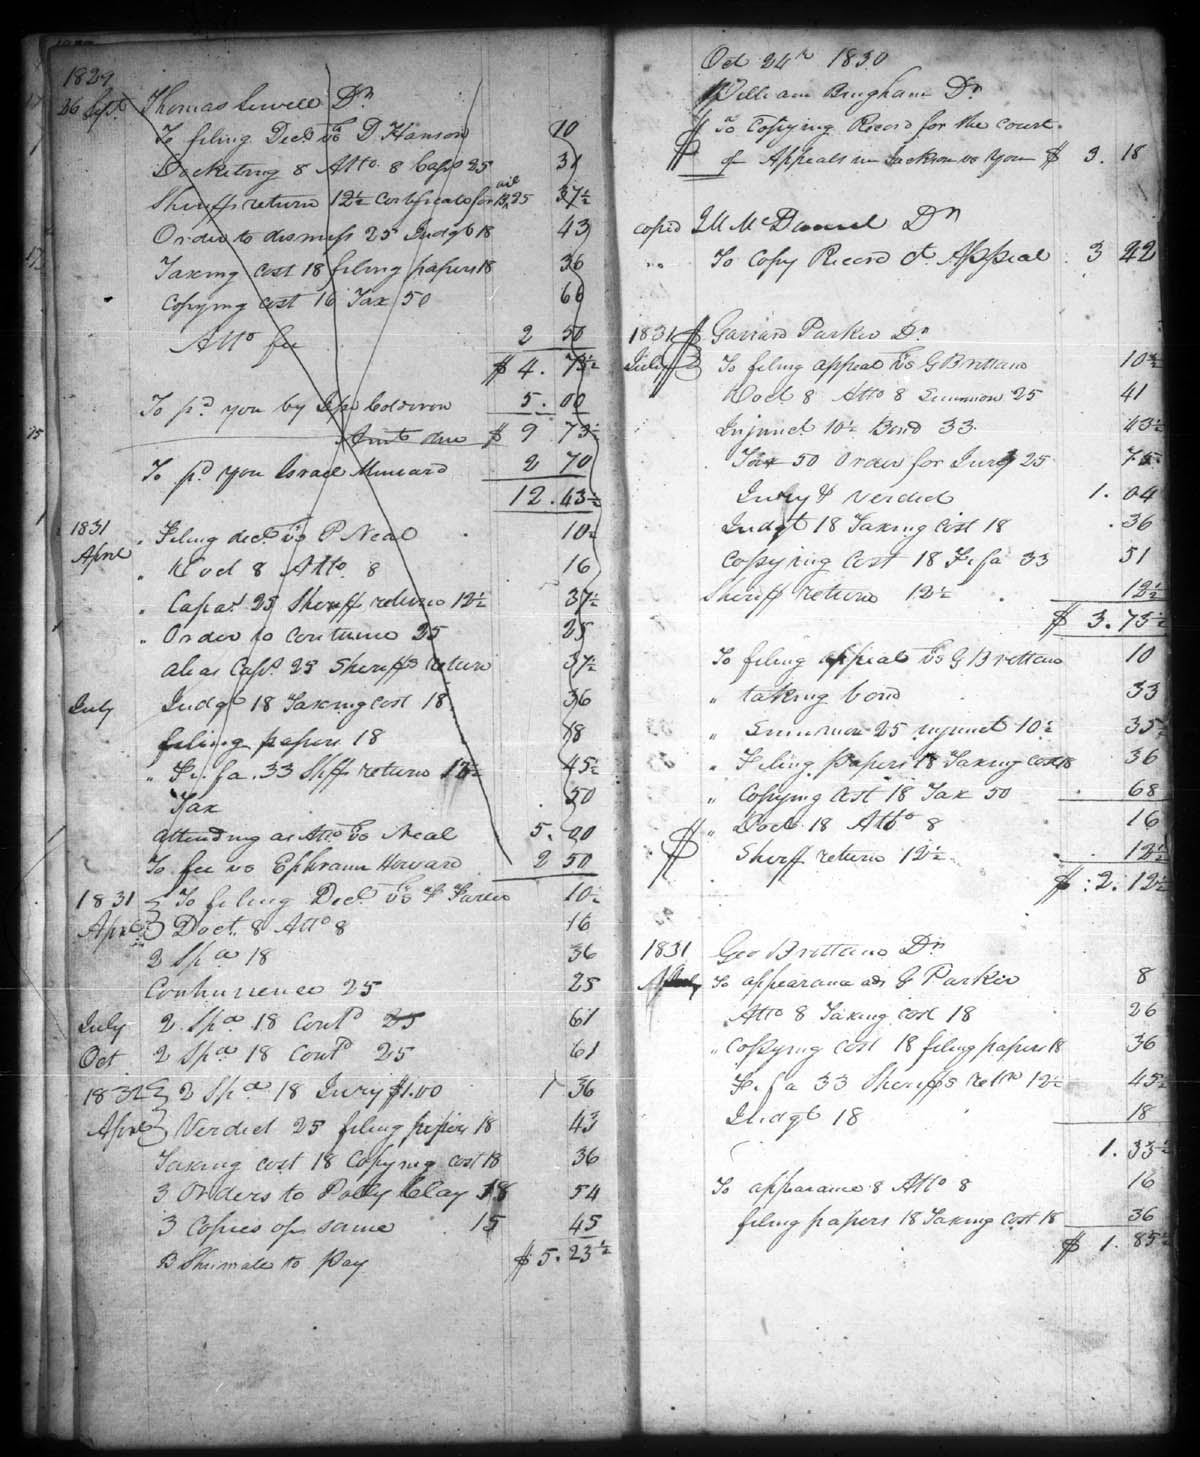 1829
26 Sept. Thomas Sewell Dr
To filing Decl. vs D Hanson 10
Docketing 8 Atto. 8 Capa 25 31
Sheriffs return 12½ Certificate for Bail 25 37½
Order to dismiss 25 Judgt 18 43
Taxing Cost 18 filing papers 18 36
Copying cost 16 Tax 50 66
Atto fee 2 50
$ 4. 73½
To pd you by Coldiron 5.00
Amt due $ 9 73½
To pd you Israel Miniard 2 70
12.43½
1831 " Filing decl. vs P Neal 10½
April " Doct 8 Atto. 8 16
" Capas 25 Sheriff return 12½ 37½
" Order to continue 25 25
alias Capa. 25 Sheriffs return 37½
July Judgt 18 Taxing cost 18 36
filing papers 18 18
" Fi. fa. 33 Shffs return 12½ 45½
Tax 50
attending as Atto vs Neal 5.00
To fee vs Ephraim Howard 2 50
1831 To filing Decl. vs F 10½
April Doct. 8 Atto 8 16
2 Spa 18 36
Continuence 25 25
July 2 Spa 18 Contd 25 61
Oct 2 Spa 18 Contd 25 61
1832 2 Spa 18 Jury $1.00 1 36
April Verdict 25 filing papers 18 43
Taxing cost 18 Copying cost 18 36
3 Orders to Polly Clay 18 54
3 Copies of same 15 45
B Shumate to Pay $ 5.23½
Oct 24th 1830
William Bingham Dr
$ To Copying Record for the court
of Appeals in Jackson vs you $ 3.18
copied McDaniel Dr
" To Copy Record Ct. Appeal 3 42
1831 $ Garrard Parker Dr
July To filing appeal vs G Brittain 10½
Doct 8 Atto 8 Summon 25 41
Injunct. 10½ Bond 33 43½
Tax 50 Order for Jury 25 75
Jury & Verdict 1.04
Judgt 18 Taxing cost 18 .36
Copying Cost 18 Fi. fa 33 51
Sheriff return 12½ 12½
$ 3.73½
To filing appeal vs G Brittain 10
" taking bond 33
" Summon 25 injunct 10½ 35½
" Filing papers 18 Taxing cost 18 36
" Copying Cost 18 Tax 50 68
" Doct. 18 Atto 8 16
$ Sheriff return 12½ 12½
$ 2.12½
1831 Geo Brittain Dr
To appearance ads G Parker 8
Atto 8 Taxing cost 18 26
" Copying cost 18 filing papers 18 36
Fi. fa 33 Sheriffs retn 12½ 45½
Judgt 18 18
1.33½
To appearance 8 Atto 8 16
filing papers 18 Taxing cost 18 36
$ 1.85½